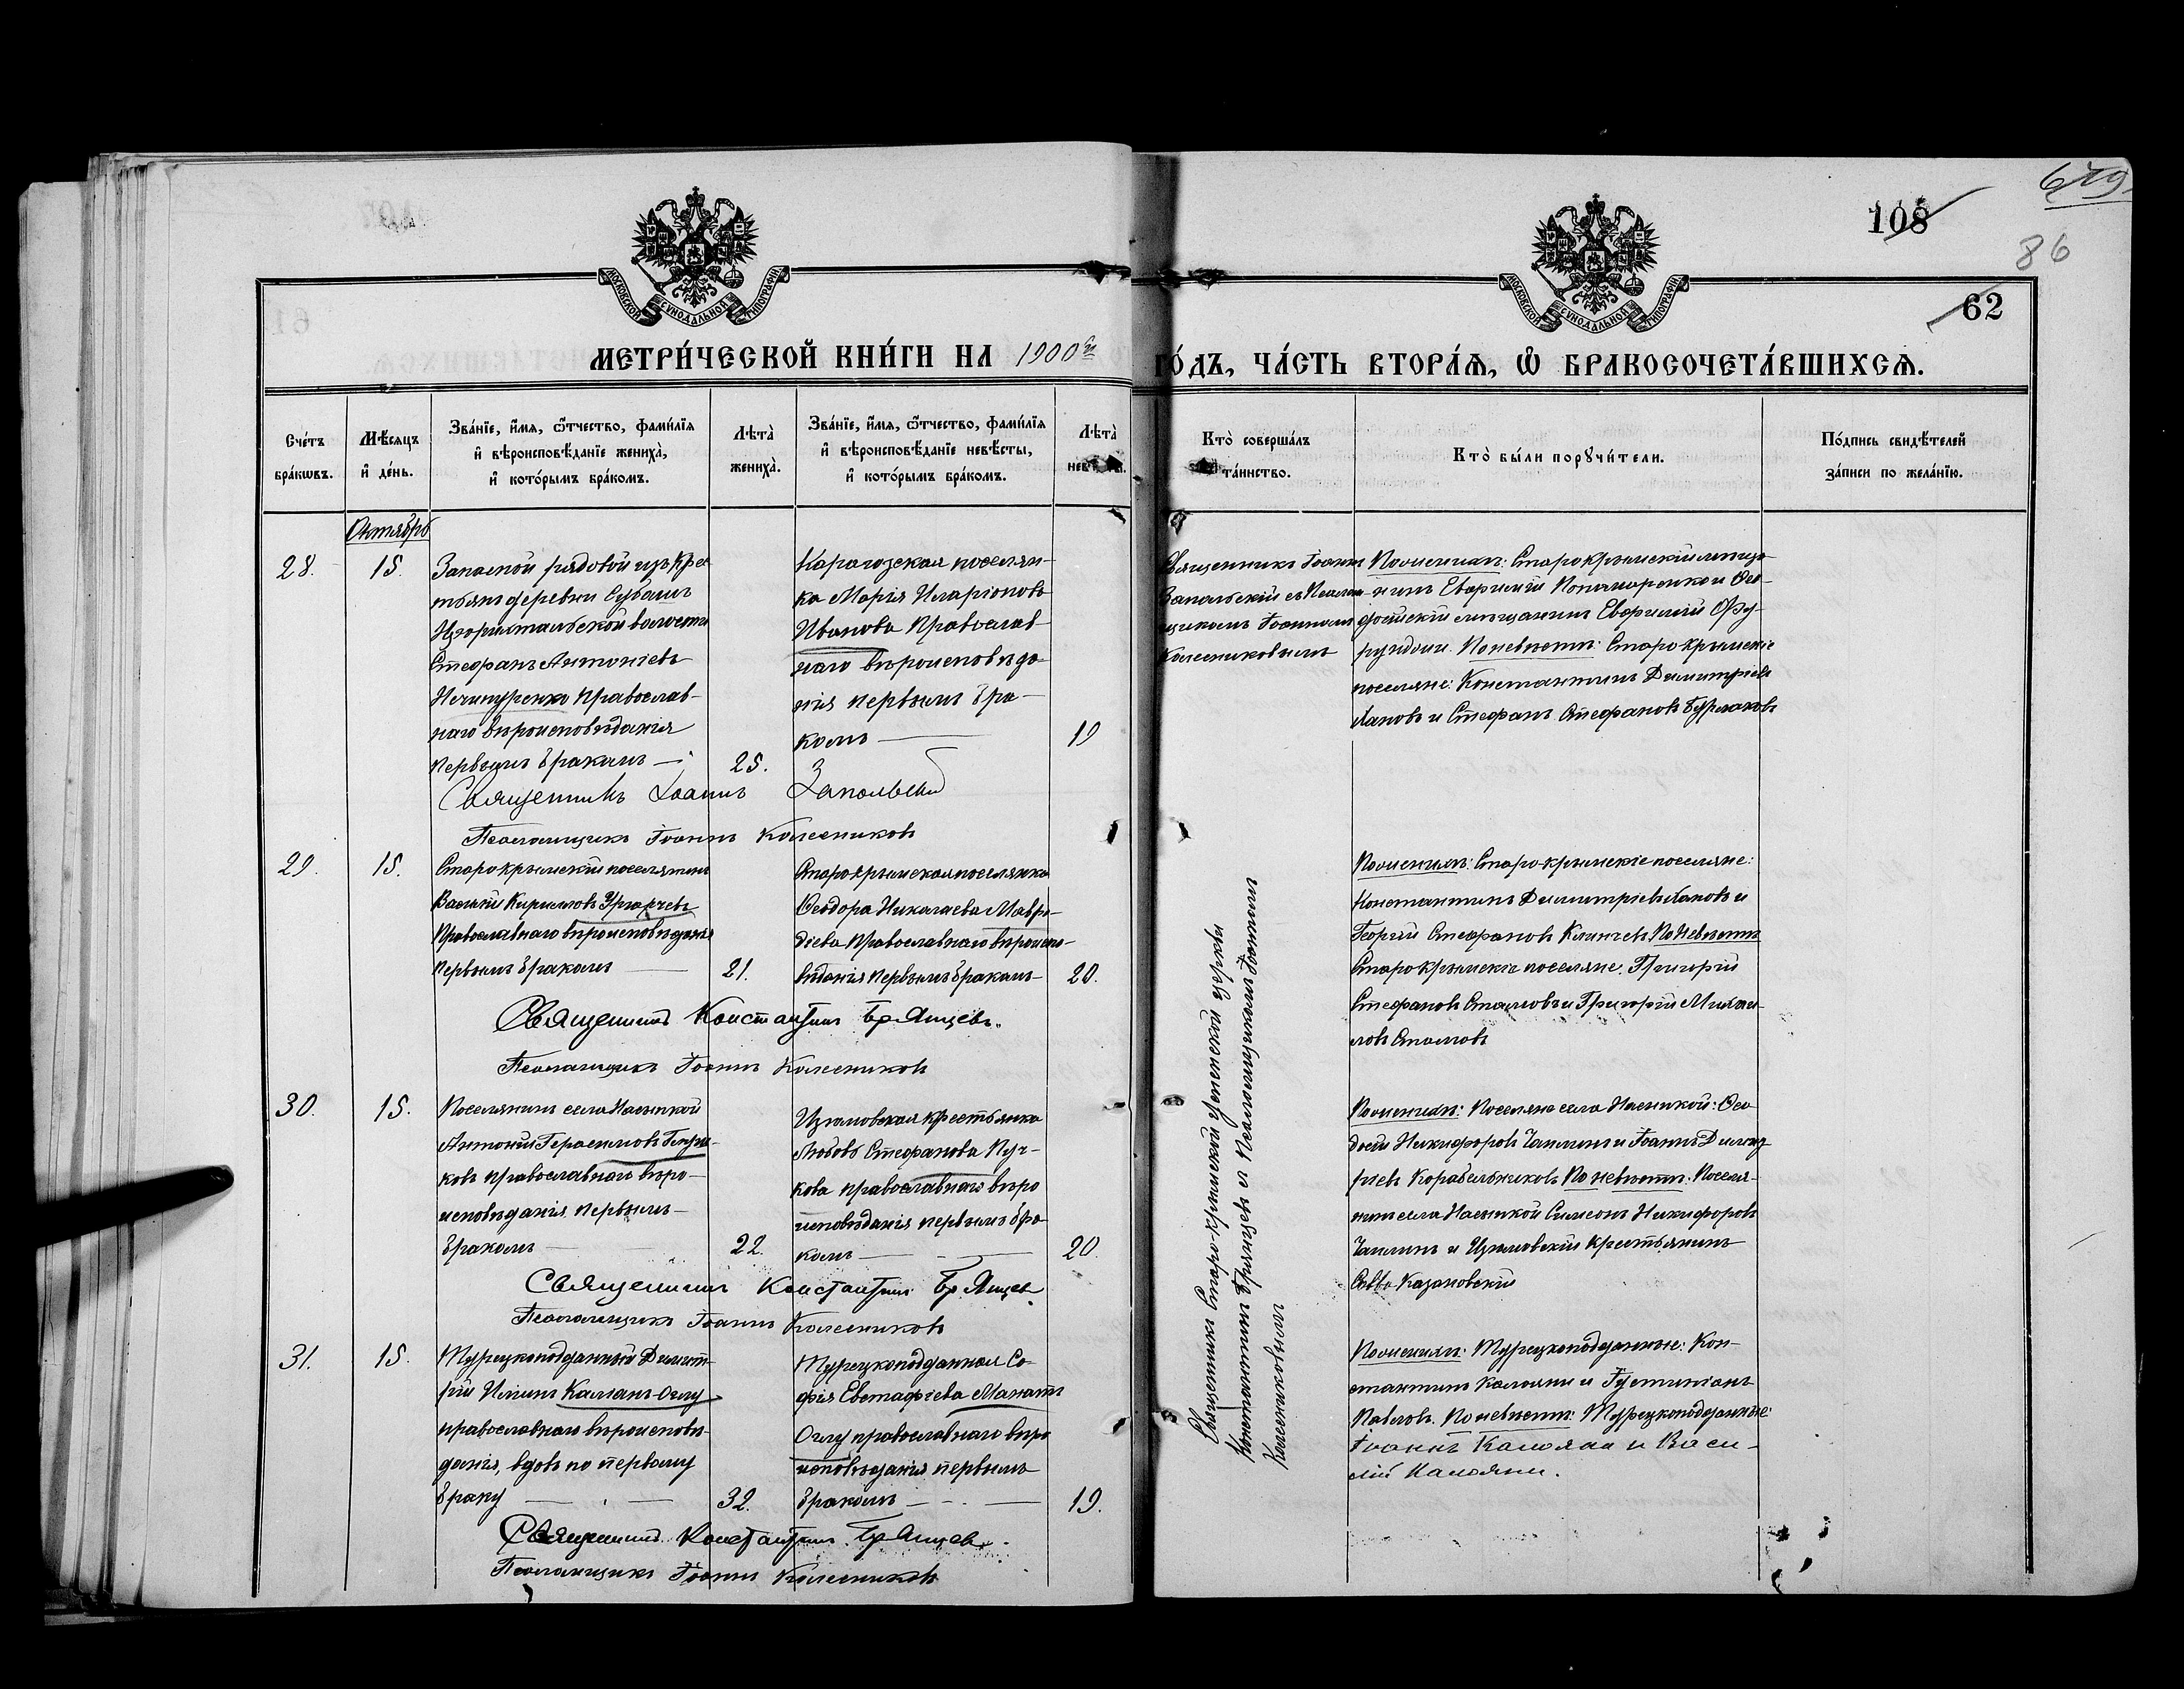 679
108
86
62
МОСКОВСКОЙ СѴНОДАЛЬНОЙ ТИПОГРАФІИ
МОСКОВСКОЙ СѴНОДАЛЬНОЙ ТИПОГРАФІИ
МЕТРИ́ЧЕСКОЙ КНИ́ГИ НА 1900й ГО́ДЪ, ЧА́СТЬ ВТОРА́Я, Ѽ БРАКОСОЧЕТА́ВШИХСЯ.
Сче́тъ бра́кωвъ.
Мѣ́сяцъ и҆ де́нь.
Зва́нїе, и҆́мя, ѻ҆́тчество, фами́лїя
и҆ вѣроисповѣ́данїе жениха̀,
и҆ кото́рымъ бра́комъ.
Лѣта̀ жениха̀.
Зва́нїе, и҆́мя, ѻ҆́тчество, фами́лїя
и҆ вѣроисповѣ́данїе невѣ́сты,
и҆ кото́рымъ бра́комъ.
Лѣта̀
Кто̀ соверша́лъ
та́инство.
Кто̀ бы́ли порꙋчи́тели.
По́дпись свидѣ́телей
за́писи по жела́нїю.
Октябрь
28.
15.
Запасной рядовой изъ Крес
тьянъ деревни Субашъ
Цюрихтальской волости
Стефанъ Антоніевъ
Нечипуренко Православ-
наго вѣроисповѣданія
первымъ бракомъ —
25.
Карагозская поселян-
ка Марія Иларіонов
Иванова Православ-
наго вѣроисповѣда-
нія первымъ бра-
комъ —
19
Священникъ Іоаннъ
Запольскій съ Псалом-
щикомъ Іоанномъ
Колесниковымъ
По женихѣ: Старокрымскій мѣща-
нинъ Евфимій Пономаренко и Ѳео-
досійскій мѣщанинъ Евфимій
По невѣстѣ: Старокрымскіе
поселяне: Константинъ Димитріевъ
Лаповъ и Стефанъ Стефановъ Бурлаковъ
Священникъ Іоаннъ Запольскій
Псаломщикъ Іоаннъ Колесниковъ
29.
15.
Старокрымскій поселянинъ
Василій Кириловъ
Православнаго вѣроисповѣданія
первымъ бракомъ —
21.
Старокрымская поселянка
Ѳеодора Николаева Маври-
діева Православнаго вѣроиспо-
вѣданія первымъ бракомъ —
20.
Священникъ Старо-крымской Успенской церкви
Константинъ Брянцевъ съ Псаломщикомъ Іоанномъ
Колесниковымъ
По женихѣ: Старо-крымскіе поселяне:
Константинъ Димитріевъ Лаповъ и
Георгій Стефановъ Клинчевъ По невѣстѣ
Старо Крымскіе поселяне: Григорій
Стефановъ Стамовъ и Григорій Михаи-
ловъ Стамовъ
Священникъ Константинъ Брянцевъ.
Псаломщикъ Іоаннъ Колесниковъ
30.
15.
Поселянинъ села Насыпкой
Антоній Герасимовъ
ковъ православнаго вѣро-
исповѣданія первымъ —
бракомъ —
22.
Изюмовская крестьянка
Любовь Стефанова Пуч-
кова православнаго вѣро
исповѣданія первымъ бра-
комъ —
20.
По женихѣ: Поселяне села Насыпкой: Ѳео
досій Никифоровъ Чаплинъ и Іоаннъ Димит
ріевъ Корабельниковъ По невѣстѣ: Поселя-
нинъ села Насыпкой Симеонъ Никифоровъ
Чаплинъ и Изюмовскій крестьянинъ
Савва Казановскій
Священникъ Константинъ Брянцевъ
Псаломщикъ Іоаннъ Колесниковъ
31.
15.
Турецкоподданный Димит-
рій Иліинъ Калтанъ-Оглу
православнаго вѣроисповѣ-
данія, вдовъ по первому
браку —
32.
Турецкоподданная Со-
фія Евстафіева
Оглу православнаго вѣро
исповѣданія первымъ
бракомъ —
19.
По женихѣ: Турецкоподданные: Кон-
стантинъ Калояни и Іустиніанъ
Павловъ. По невѣстѣ: Турецкоподданные:
Іоаннъ Калояни и Васи-
лій Калояни.
Священникъ Константинъ Брянцевъ.
Псаломщикъ Іоаннъ Колесниковъ